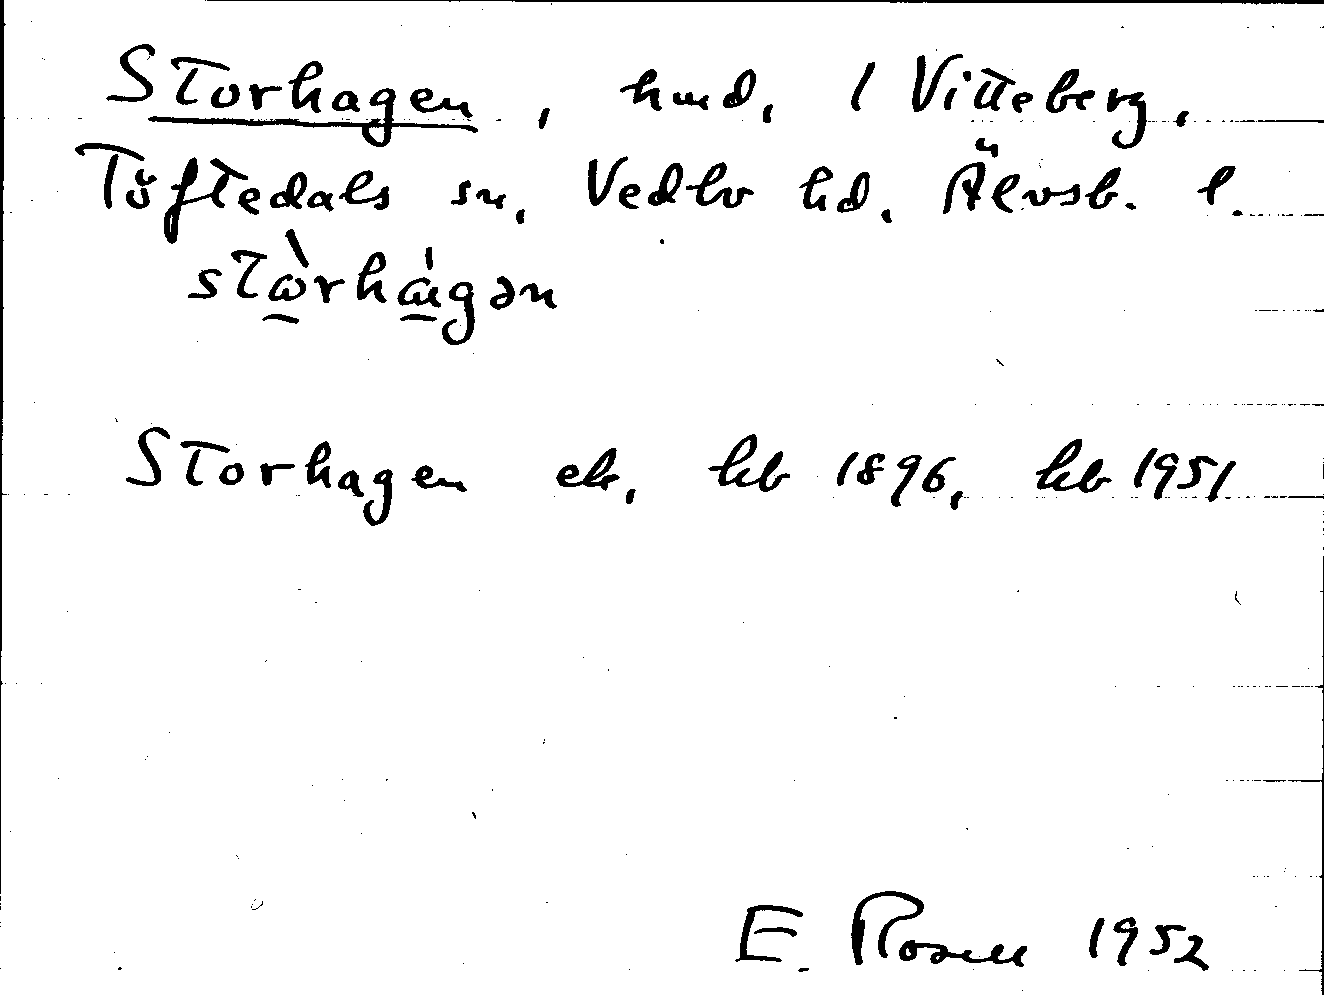 Storhagen, hmd, 1 Vitteberg,
Töftedals sn, Vedbo hd, Älvsb. l.
stὼrhágən
Storhagen eb, kb 1896, kb 1951
E. Rosell 1952